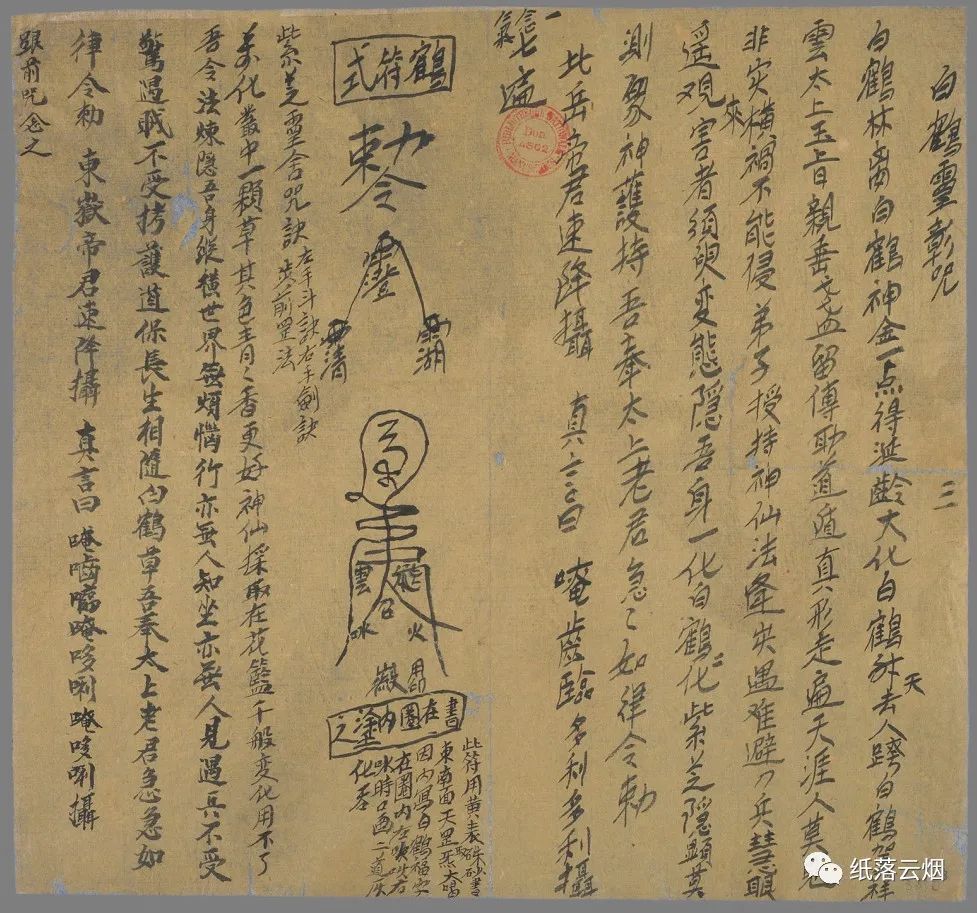 白鶴靈彰咒
三
白鶴林裔白鶴神金一点得涎齡大化白鶴升天去人跨白鶴駕祥
雲太上玉旨親垂受盟留傳助道遁真形走遍天涯人莫見
非灾橫禍不能侵弟子授持神仙法逢灾遇难避刀兵慧眼
遥观來害者須臾变態隱吾身一化白鶴二化紫芝隱顯莫
測聚神護持吾奉太上老君急々如律令勅
北岳帝君速降攝 真言曰 唵齒臨多利多利攝
一氣念七遍
鶴符式
勅令
紫芝靈合咒訣 左手斗訣右手劍訣
步前罡法
萬化叢中一顆草其色青々香更好神仙採取在花籃千般变化用不了
吾令法煉隱吾身縱橫世界無煩惱行亦無人知坐亦無人見遇兵不受
驚遇賊不受拷護道保長生相隨白鶴草吾奉太上老君急急如
律令勅 東嶽帝君速降攝 真言曰 唵嚙嚅唵哆唎唵哆唎攝
跟前咒念之
書在圈內塗之
此符用黃表硃砂書
東南面天罡炁大喝
化吞
纸落云烟